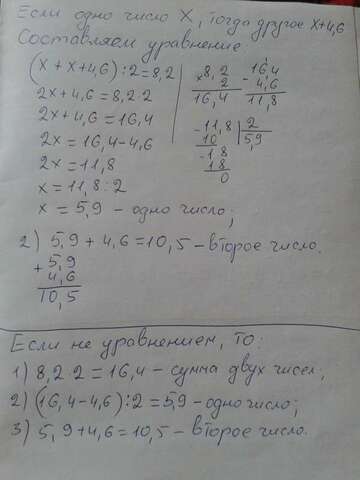 Если одно число X, тогда другое X+4,6
Составляем уравнение
(x + x+4,6):2=8,2
2x+4,6=8,2·2
2x+4,6=16,4
2x=16,4-4,6
2x=11,8
x=11,8:2
x=5,9 - одно число;
× 8,2
2
16,4
- 16,4
4,6
11,8
- 11,8 | 2
10 5,9
- 18
18
0
2) 5,9+4,6=10,5 - второе число.
+ 5,9
4,6
10,5
Если не уравнением, то:
1) 8,2 2=16,4 - сумма двух чисел;
2) (16,4-4,6):2=5,9 - одно число;
3) 5,9+4,6=10,5 - второе число.